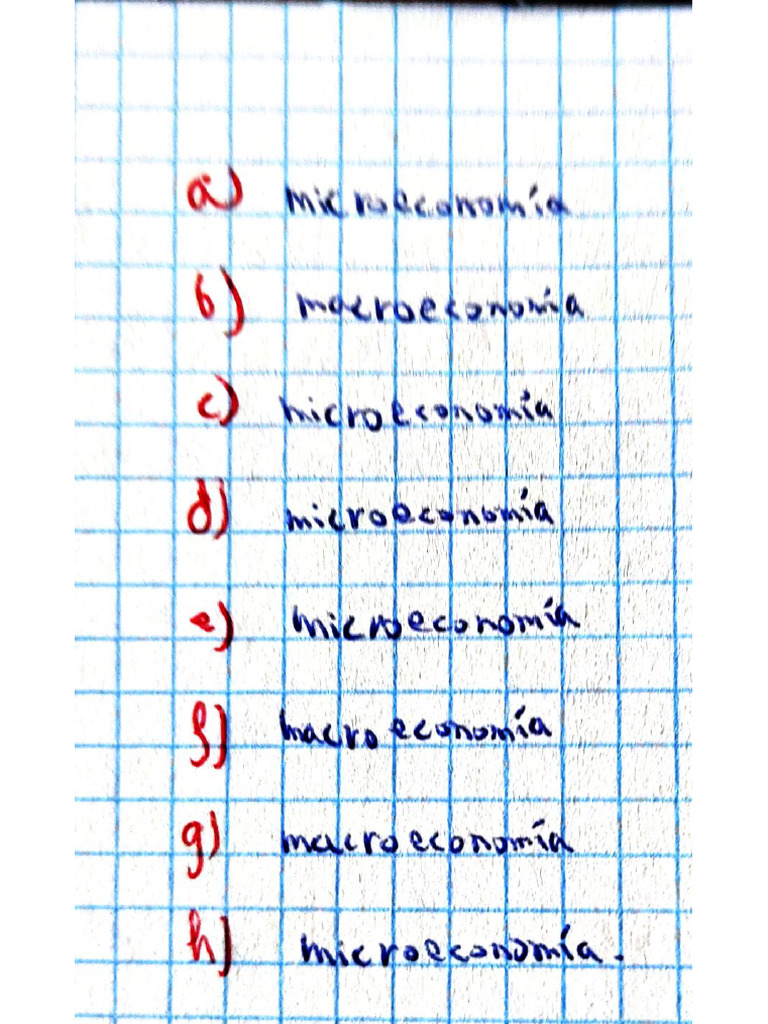 a) microeconomía
b) macroeconomía
c) microeconomía
d) microeconomía
e) microeconomía
f) macroeconomía
g) macroeconomía
h) microeconomía.